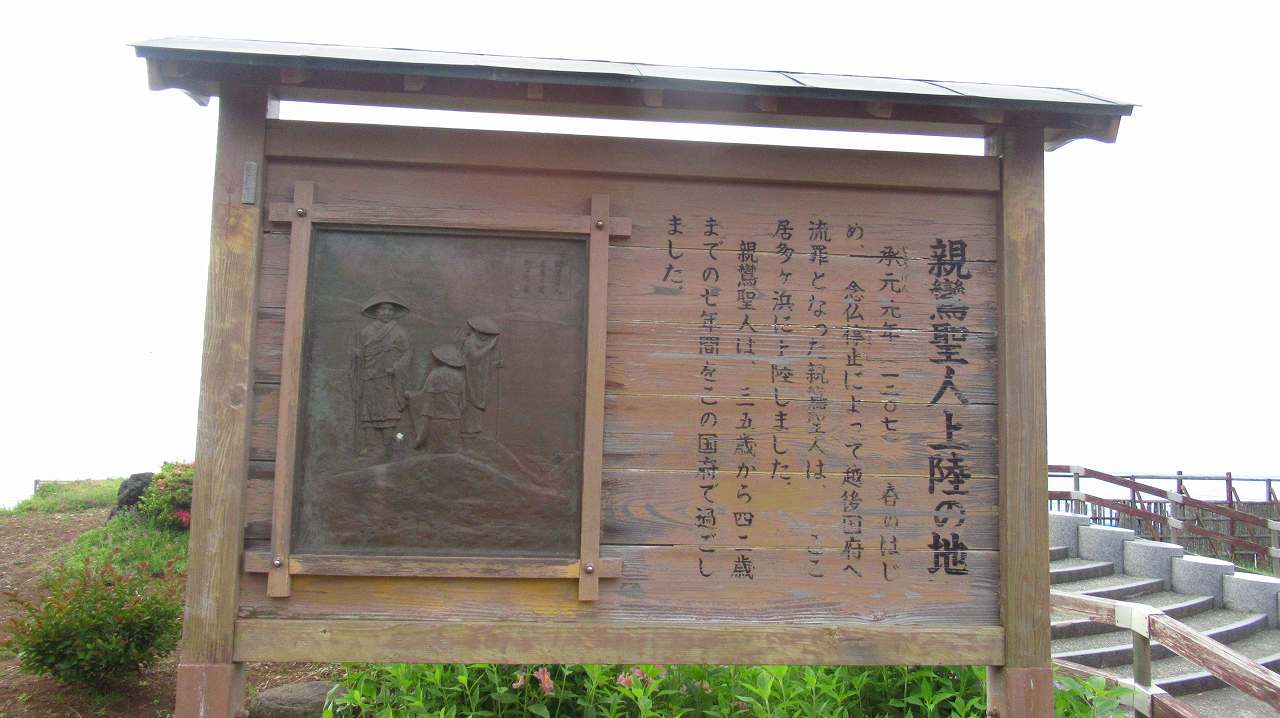 親鸞聖人上陸の地
承元元年(一二〇七)春のはじ
め、念仏停止によって越後国府へ
流罪となった親鸞聖人は、ここ
居多ヶ浜に上陸しました。
親鸞聖人は、三五歳から四二歳
までの七年間をこの国府で過ごし
ました。